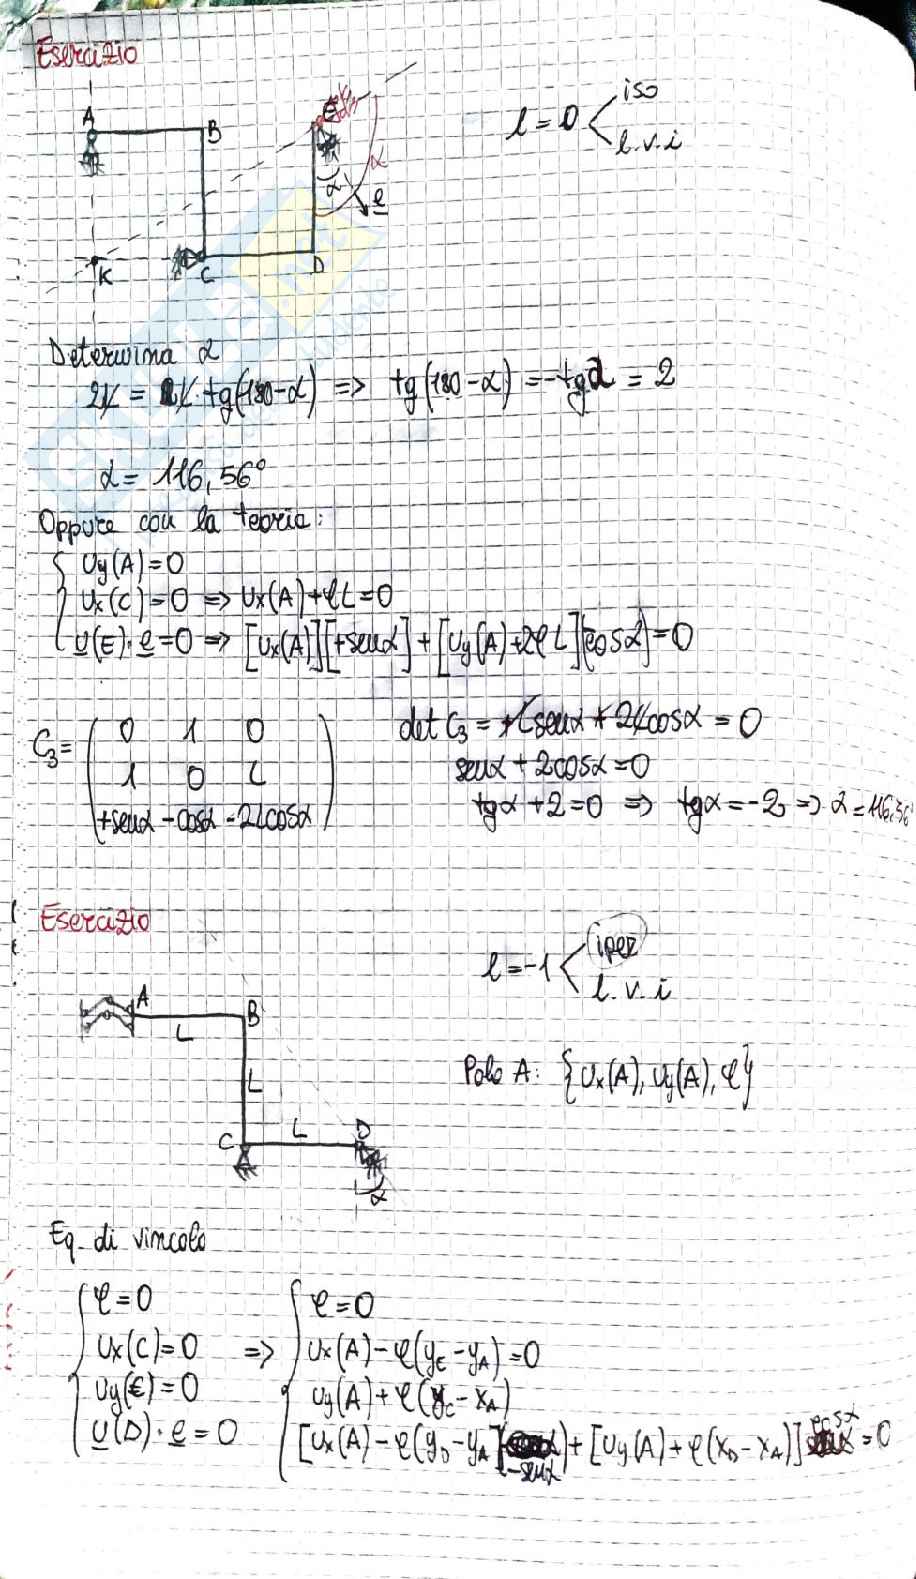 Esercizio
A
B
E
α
α
e
K
C
D
l = 0 < iso
l.v.i
Determina α
2L = L·tg(180-α) => tg(180-α) = -tgα = 2
α = 116,56°
Oppure con la teoria:
Uy(A) = 0
Ux(C) = 0 => Ux(A) + φL = 0
U(E)·e = 0 => [Ux(A)][+senα] + [Uy(A)+2φL][cosα] = 0
C3 = ( 0 1 0
1 0 L
+senα -cosα -2Lcosα )
det C3 = +Lsenα + 2Lcosα = 0
senα + 2cosα = 0
tgα + 2 = 0 => tgα = -2 => α = 116,56°
Esercizio
A
L
B
L
C
L
D
α
l = -1 < iper
l.v.i
Polo A: {Ux(A), Uy(A), φ}
Eq. di vincolo
φ = 0
Ux(C) = 0 =>
Uy(C) = 0
U(D)·e = 0
φ = 0
Ux(A) - φ(yC - yA) = 0
Uy(A) + φ(xC - xA)
[Ux(A) - φ(yD - yA)](-senα) + [Uy(A) + φ(xD - xA)] cosα = 0